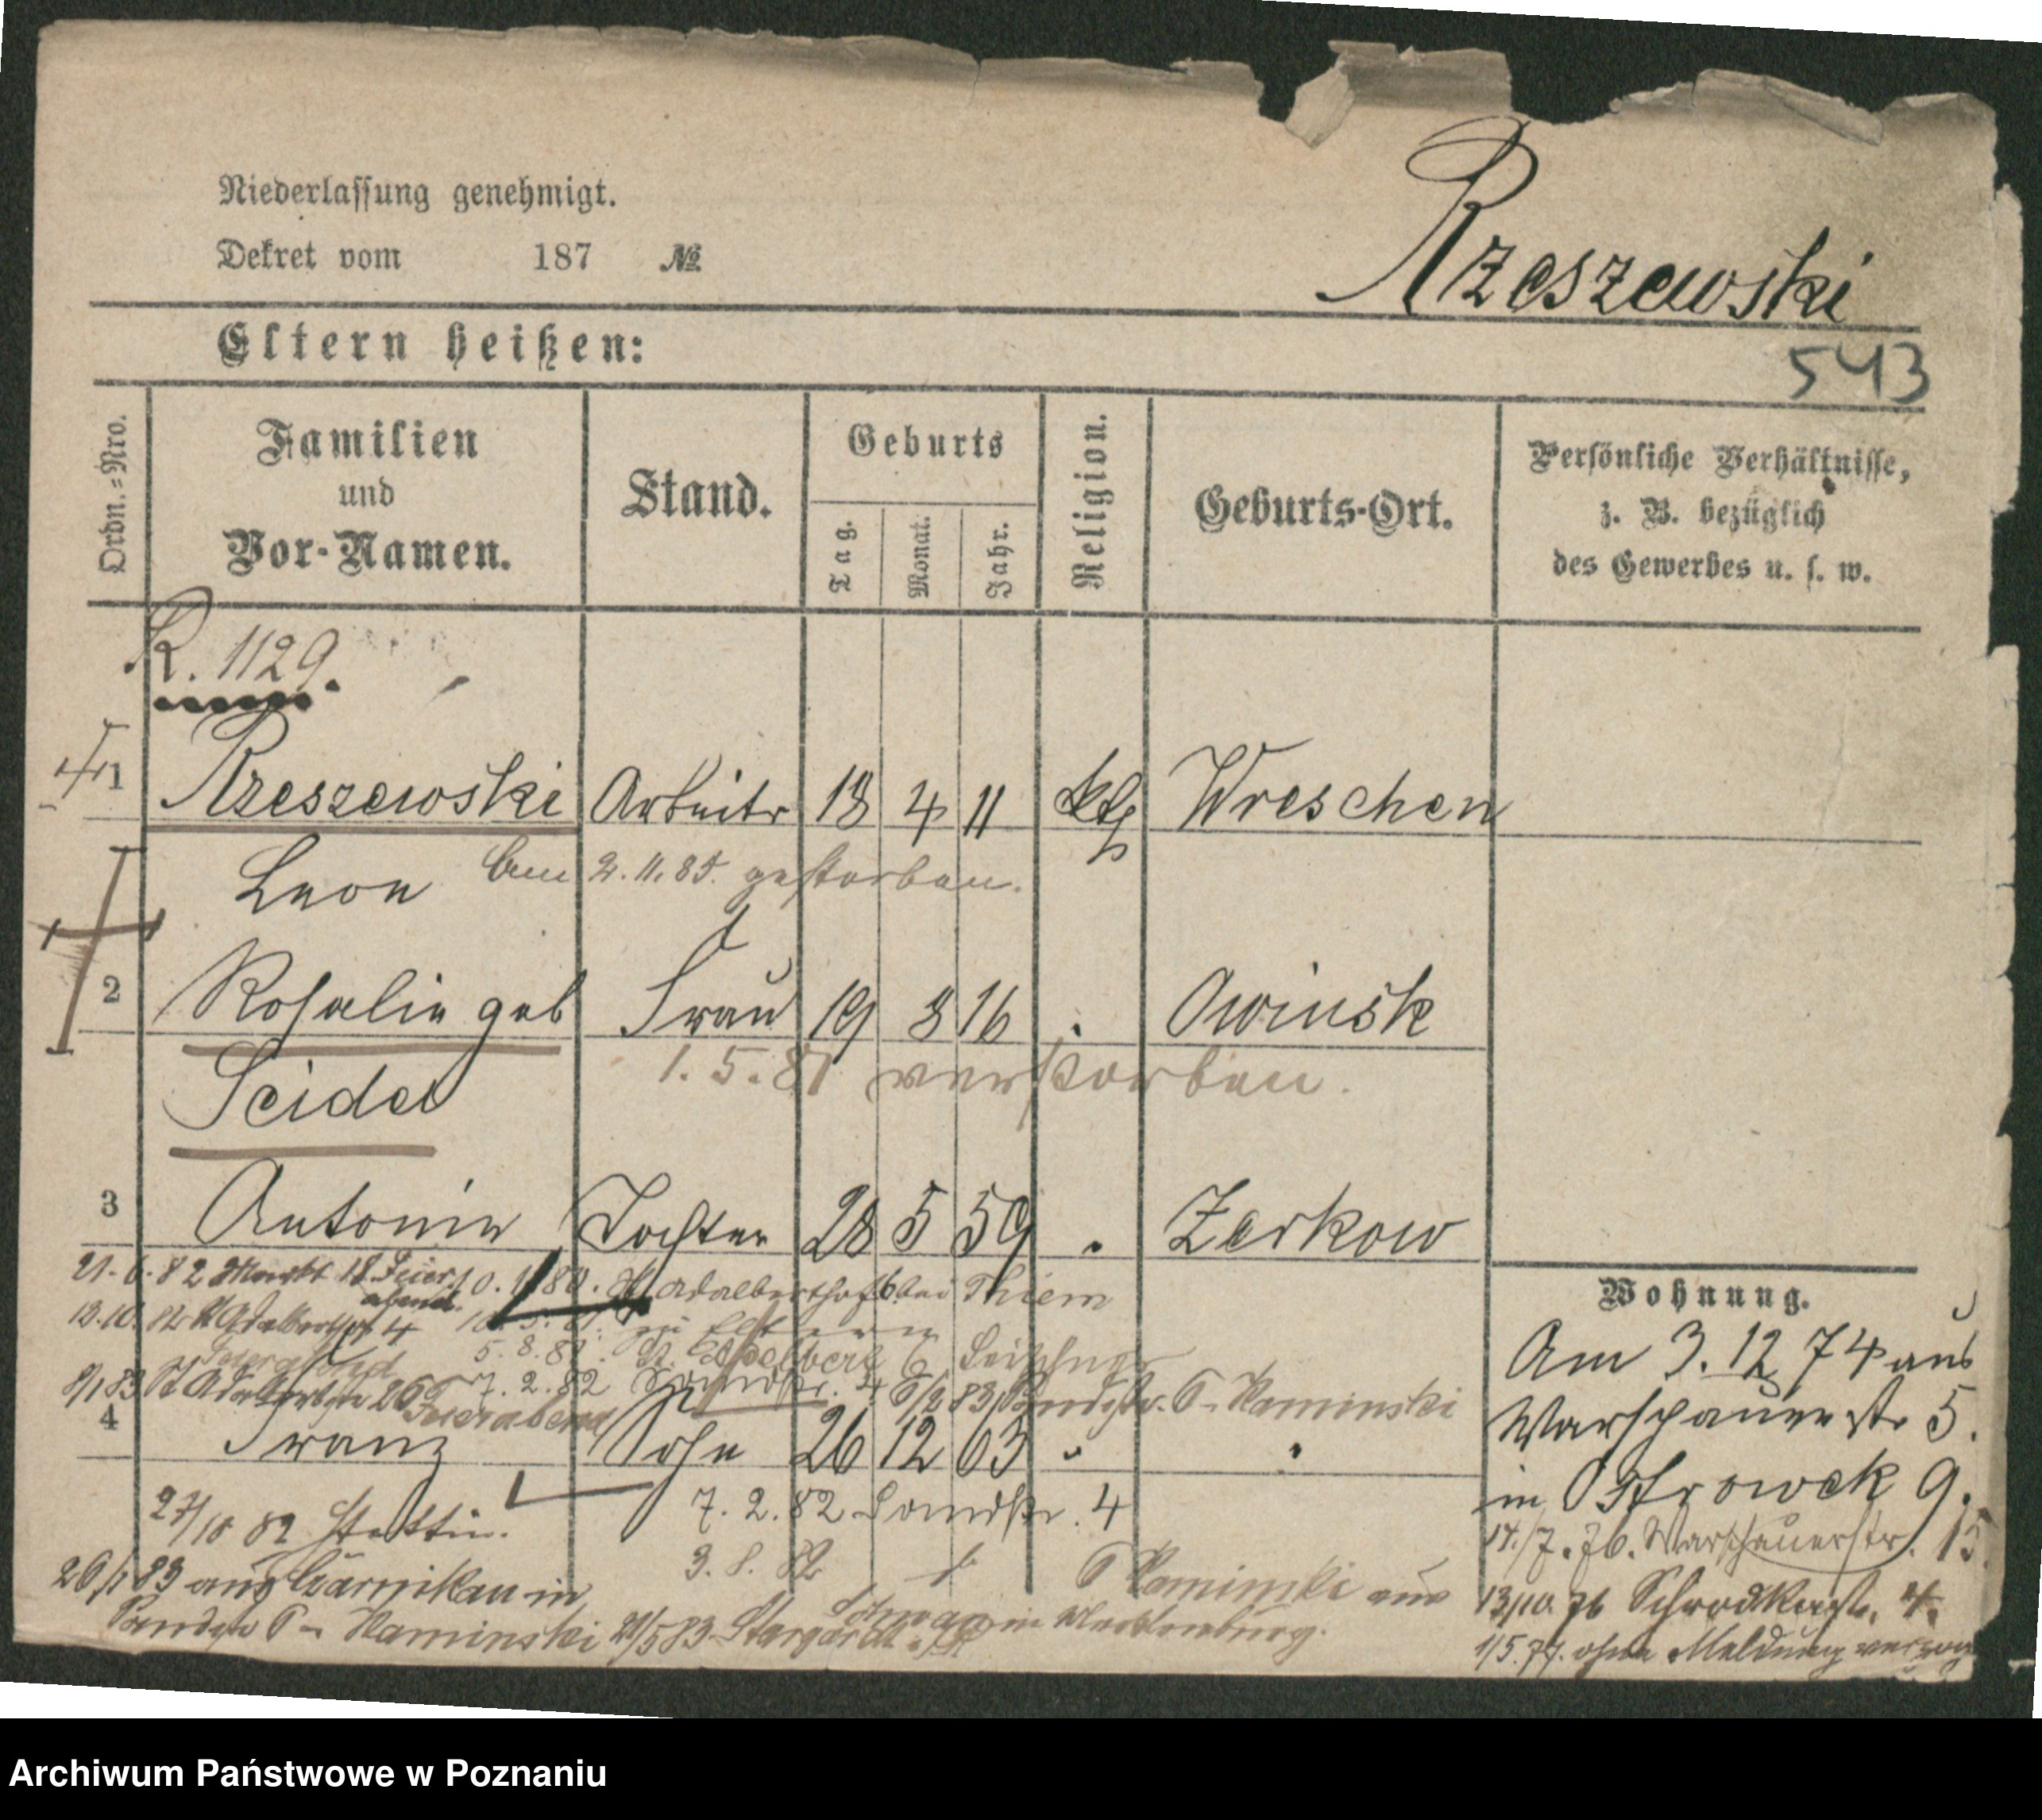 Niederlassung genehmigt.
Dekret vom 187 №
Rzeszewski
Eltern heißen:
543
Ordn.=Nro.
Familien und Vor-Namen.
Stand.
Geburts
Tag.
Monat.
Jahr.
Religion.
Geburts-Ort.
Persönliche Verhältnisse,
z. B. bezüglich
des Gewerbes u. s. w.
R. 1129.
1 Rzeszewski Arbeitr 18 4 11 kth Wreschen
Leon Am 2.11.85. gestorben.
2 Rosalie geb Frau 19 8 16 . Owinsk
Seidel
1.5.81 verstorben.
3 Antonie Tochter 28 5 59 " Zerkow
21.6.82 Markt 18 Feier
abend.
St Adalberthof bei Thiem
13.10.82 St Adalbertstr 4
Feierabend
zu Eltern
5.8.81. St. Adalbert
7.2.82 Sandstr. 4
9/1 83 St Adalbertstr 26 Feierabend
6/2 83 6 - Kaminski
4 Franz Sohn 26 12 63 " "
7.2.82 Sandstr. 4
27/10 82 Stettin.
3.8.82
6 Kaminski aus
26/1 83 aus Czarnikau in
6 - Kaminski 21/5 83 Stargardt
in Mecklenburg.
Wohnung.
Am 3.12 74 aus
Warschauerstr 5.
in Ostrowek 9.
14./7.76. Warschauerstr. 15.
13/10 76 Schrodkastr. 4.
1/5.77. ohne Meldung verzog
Archiwum Państwowe w Poznaniu